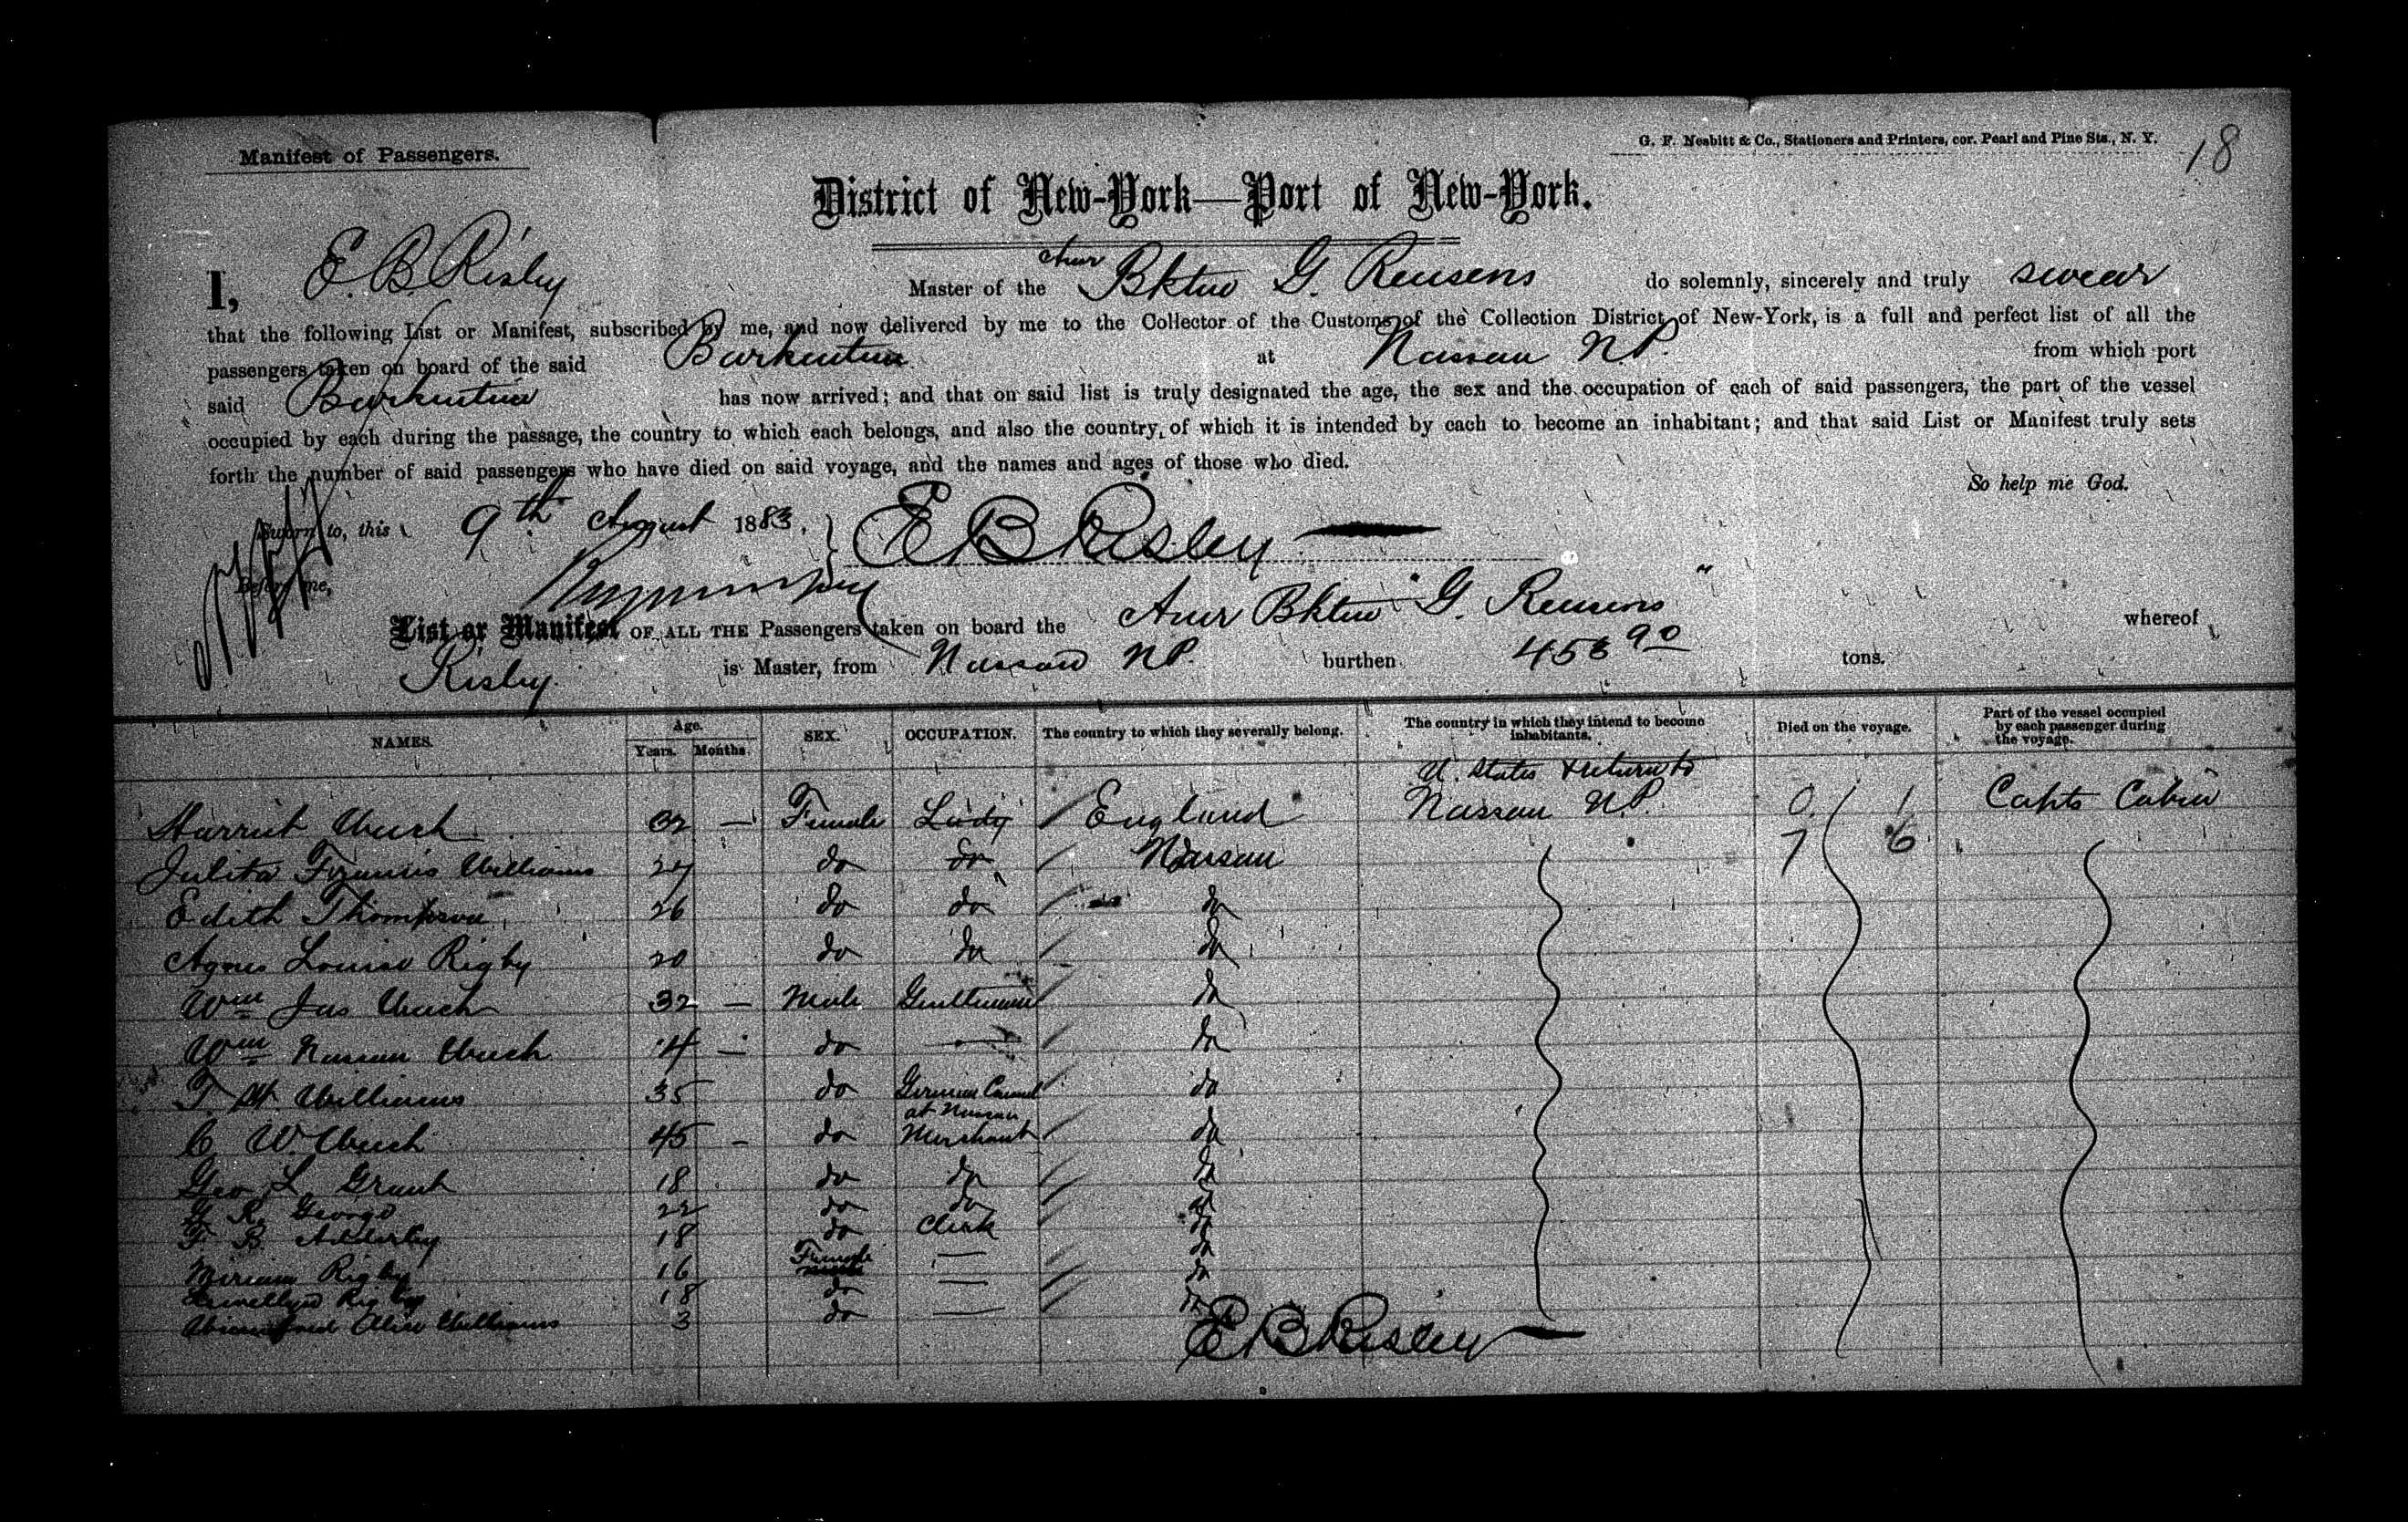 Manifest of Passengers.
G. F. Nesbitt & Co., Stationers and Printers, cor. Pearl and Pine Sts., N. Y.
18
District of New-York—Port of New-York.
I, E. B. Risley Master of the Amr Bktne G. Reusens do solemnly, sincerely and truly swear
that the following List or Manifest, subscribed by me, and now delivered by me to the Collector of the Customs of the Collection District of New-York, is a full and perfect list of all the
passengers taken on board of the said Barkentine at Nassau N.P. from which port
said Barkentine has now arrived; and that on said list is truly designated the age, the sex and the occupation of each of said passengers, the part of the vessel
occupied by each during the passage, the country to which each belongs, and also the country of which it is intended by each to become an inhabitant; and that said List or Manifest truly sets
forth the number of said passengers who have died on said voyage, and the names and ages of those who died.
So help me God.
Sworn to, this 9th August 1883. E B Risley
Before me,
List or Manifest OF ALL THE Passengers taken on board the Amr Bktne "G. Reusens" whereof
Risley is Master, from Nassau NP. burthen 90 tons.
NAMES. Age. Years. Months. SEX. OCCUPATION. The country to which they severally belong. The country in which they intend to become inhabitants. Died on the voyage. Part of the vessel occupied by each passenger during the voyage.
U. States & return to
Harriet 32 — Female Lady England Nassau N.P. 0 1 Capts Cabin
Julita Williams 27 do do Nassau 7 6
Edith Thompson 26 do do do
Agnes Louise Rigby 20 do do do
Wm Jas 32 — Male Gentleman do
Wm Nassau 14 — do — do
T. Williams 35 do German Consul do
at Nassau
C. W. 45 - do Merchant do
Geo L Grant 18 do do do
R. George 22 do do do
F B Adderley 18 do Clerk do
Miriam Rigby 16 Female — do
Llewellyn Rigby 18 do — do
Alice Williams 3 do — do
E B Risley